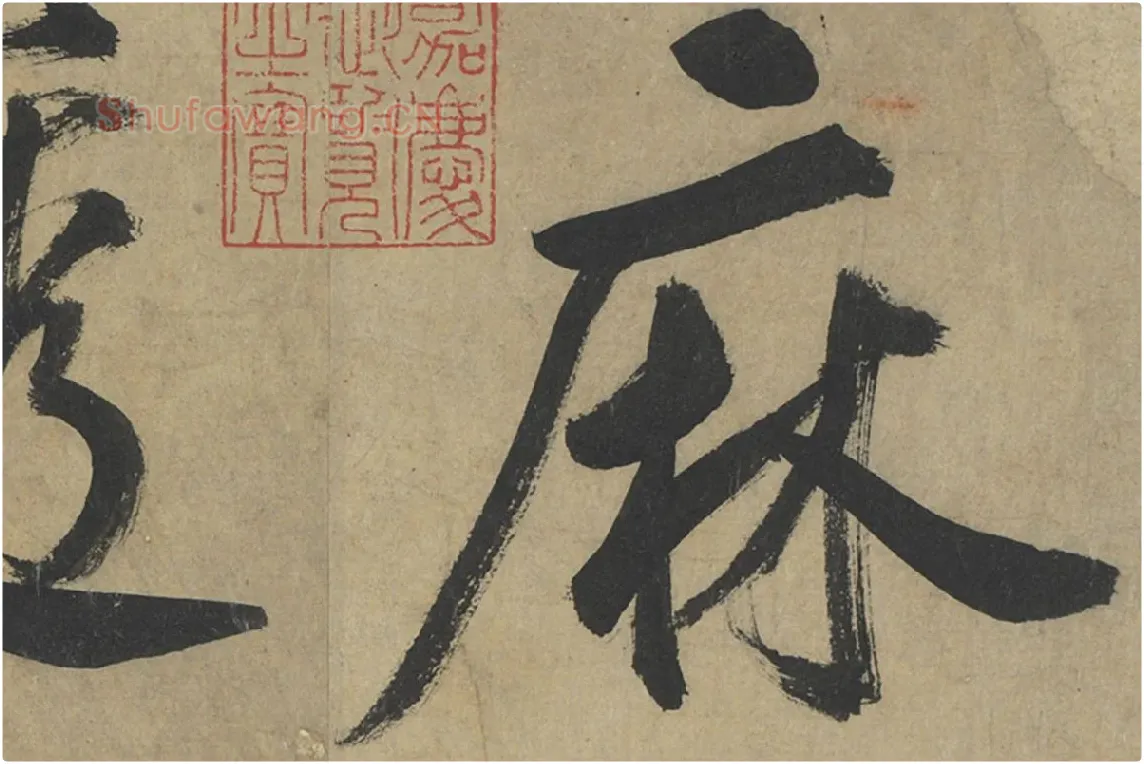 麻
嘉慶
御覽
之寶
Shufawang.cn